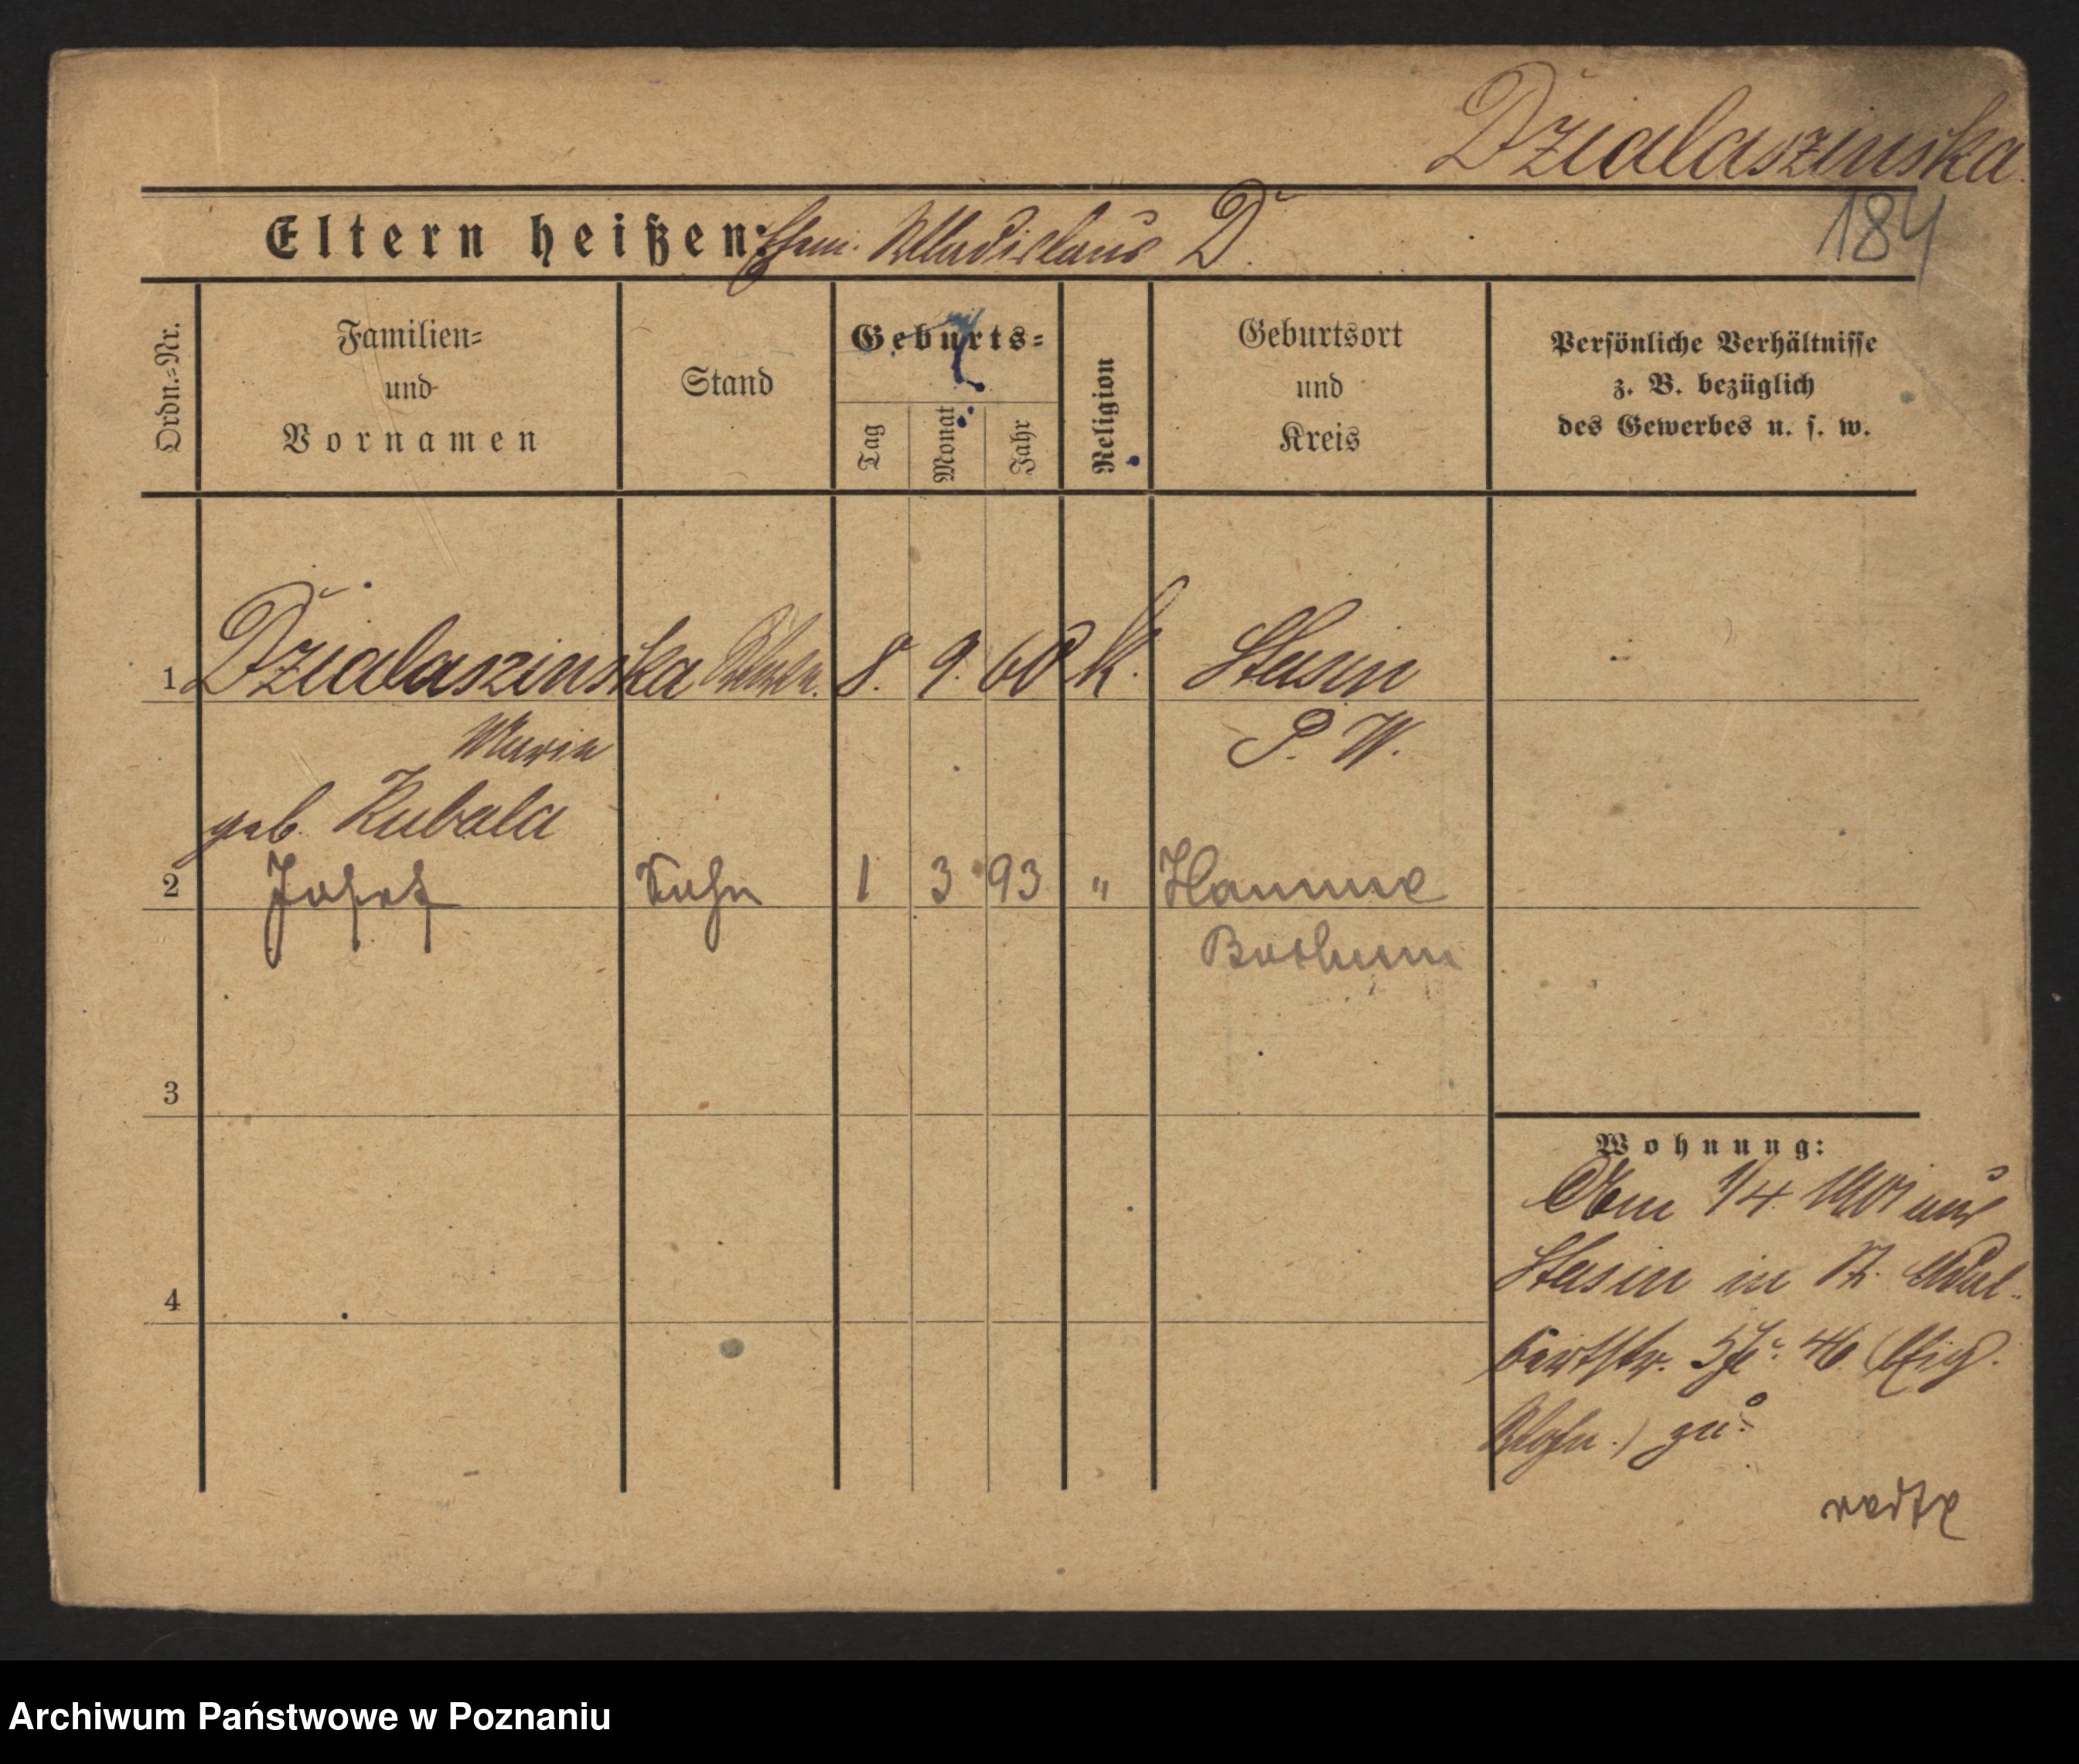 Dzialaszinska.
184
Eltern heißen: Ehem. Wladislaus D.
Ordn.=Nr.
Familien=
und
Vornamen
Stand
Geburts=
Tag
Monat
Jahr
Religion
Geburtsort
und
Kreis
Persönliche Verhältnisse
z. B. bezüglich
des Gewerbes u. s. w.
1 Dzialaszinska 8. 9. 60 K. Stusin
Maria P. W.
geb. Kubala
2 Josef Sohn 1 3 93 " Hamme
Bochum
3
4
Wohnung:
Vom 1/4 1901 aus
Stusin in St.
46 (Eig.
Wohn.) zu.
Archiwum Państwowe w Poznaniu